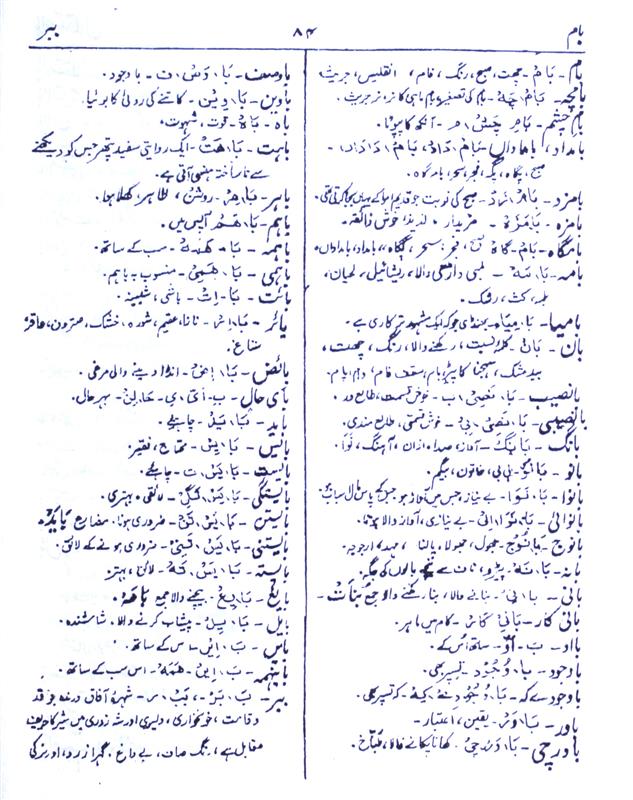 بام
۸۴
ببر
بام - بَامْ - چھت، صبح، رنگ، فام، انفلیس، جریث۔
بامچہ - بَامْ چَہْ - بام کی تصغیر، بام ماہی کا نر، نر جریث۔
بام چشم - بَامِ چَشْم - آنکھ کا پپوٹا۔
بامداد، بامدادان - بَامْ دَادْ، بَامْ دَادَانْ -
صبح، پگاہ، پگہ، فجر، سحر، بامگاہ۔
بامزد - بَامْ زَدْ - صبح کی نوبت جو قدیم امرا کے یہاں بجا کرتی تھی۔
بامزہ - بَامَزَہْ - مزیدار، لذیذ، خوش ذائقہ۔
بامگاہ - بَامْ گَاہْ - فجر، سحر، پگاہ، بامداد، بامدادان۔
بامہ - بَا مَہْ - لمبی داڑھی والا، ریشائیل، لحیان،
بامیا - بَا مِیَا - بھنڈی جو کہ ایک مشہور ترکاری ہے۔
بان - بَانْ - کلمۂ نسبت، رکھنے والا، رنگ، چھت،
بید مشک، سہجنا کا پیڑ، بام، سقف، فام، دام، بام۔
بانصیب - بَا نَصِیْب - خوش قسمت، طالع ور۔
بانصیبی - بَا نَصِیْ بِیْ - خوش قسمتی، طالع مندی۔
بانگ - بَانْگ - آواز، صدا، اذان، آہنگ، نوا۔
بانو - بَانُوْ - بی بی، خاتون، بیگم۔
بانوا - بَا نَوَا - بے نیاز، جس میں آواز ہو، جس کے پاس مال اسباب ہو۔
بانوائی - بَا نَوَائِیْ - بے نیازی، آواز والا ہونا۔
بانوج - بَا نُوْج - جھول، جھولا، پالنا، مہد، ارجوحہ۔
بانہ - بَا نَہْ - پیڑو، ناف سے نیچے بالوں کی جگہ۔
بانی - بَا نِیْ - بنانے والا، بنا رکھنے والا، جمع بُنَات -
بانی کار - بَانِیْ کَار - کام میں ماہر۔
بااو - بَ - اُوْ - ساتھ اُس کے۔
باوجود - بَا وُجُوْد - تسپر بھی۔
باوجودے کہ - بَا وُجُوْدِے کِہْ - کہ تسپر بھی۔
باور - بَا وَرْ - یقین، اعتبار -
باورچی - بَا وَرْچِیْ - کھانا پکانے والا، طبّاخ۔
باوصف - بَا وَصْ ف - باوجود۔
باوین - بَا وِیْن - کاتنے کی روئی کا بوئیا۔
باہ - بَاہْ - قوت، شہوت۔
باہت - بَا ہَتْ - ایک روایتی سفید پتھر جس کو دیکھنے
سے بے ساختہ ہنسی آتی ہے۔
باہر - بَا ہِرْ - روشن، ظاہر، کھلا ہوا۔
باہم - بَا ہَمْ - آپس میں۔
باہمہ - بَا ہَمَہْ - سب کے ساتھ۔
باہمی - بَا ہَمِیْ - منسوب بہ باہم۔
بائت - بَا ئِتْ - باشی، شبینہ۔
بائر - بَا ئِرْ - نازا، عقیم، شورہ، خشک، سترون، عاقر
بائض - بَا ئِضْ - انڈا دینے والی مرغی۔
بای حال - بِ اَیِّ حَال - بہر حال۔
باید - بَا یَدْ - چاہیے۔
بائس - بَا ئِسْ - محتاج، فقیر۔
بایست - بَا یِسْ ت - چاہیے۔
بایستگی - بَا یِسْ تَگِیْ - لائقی، بہتری۔
بایستن - بَا یِسْ تَنْ - ضروری ہونا، مضارع بَایَدْ۔
بایستنی - بَا یِسْ تَنِیْ - ضروری ہونے کے لائق۔
بایستہ - بَا یِسْ تَہْ - لائق، بہتر۔
بائع - بَا ئِعْ - بیچنے والا، جمع بَاعَہْ۔
بایل - بَا ئِلْ - پیشاب کرنے والا، شاشندہ۔
باین - بَ اِیْں - اس کے ساتھ۔
باینہمہ - بَ اِیْں ہَمَہْ - اس سب کے ساتھ۔
ببر - بَ بَرْ، بَبْ ر - شہرۂ آفاق درندہ جو قد
و قامت، خونخواری، دلیری اور شہ زوری میں شیر کا حریف
مقابل ہے، رنگ صاف، بے داغ، گہرا زرد، اور نر کی